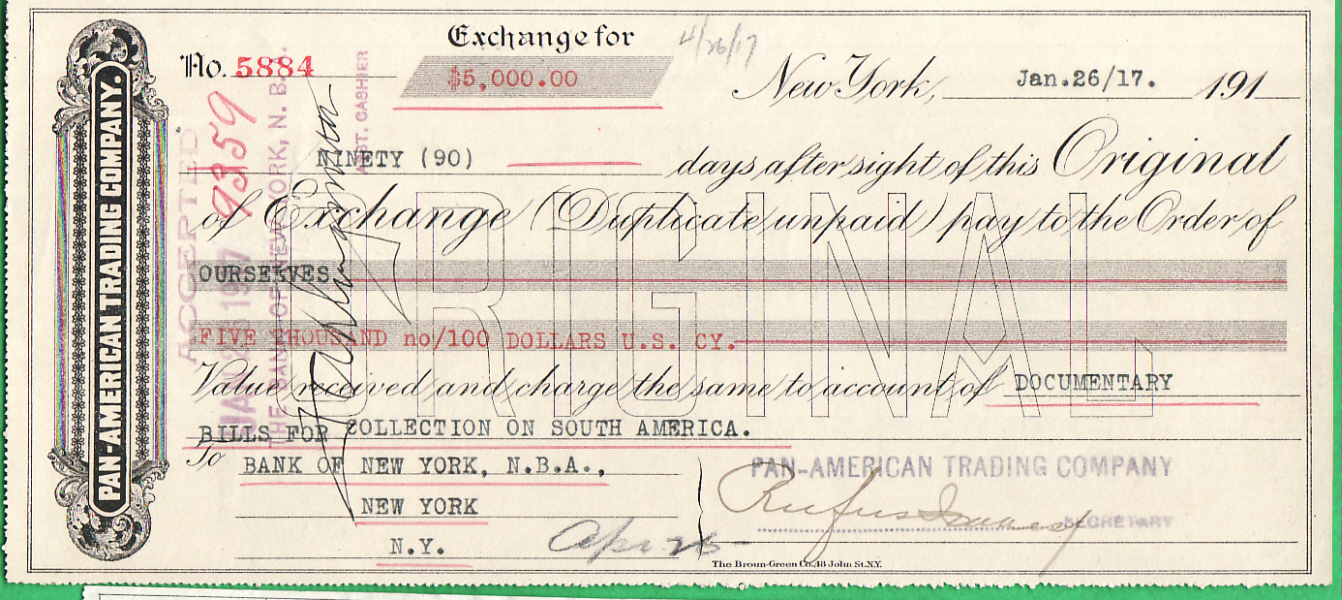 PAN-AMERICAN TRADING COMPANY.
Exchange for
4/26/17
No. 5884
$5,000.00
New York, Jan.26/17. 191
ACCEPTED
93159
THE BANK OF NEW YORK, N. B. A.
ASST. CASHIER
NINETY (90) days after sight of this Original
of Exchange (Duplicate unpaid) pay to the Order of
OURSELVES
ORIGINAL
FIVE THOUSAND no/100 DOLLARS U.S. CY.
Value received and charge the same to account of DOCUMENTARY
BILLS FOR COLLECTION ON SOUTH AMERICA.
To BANK OF NEW YORK, N.B.A.,
NEW YORK
N.Y.
PAN-AMERICAN TRADING COMPANY
Rufus
SECRETARY
Apr 25
The Broun-Green Co., 48 John St. N.Y.